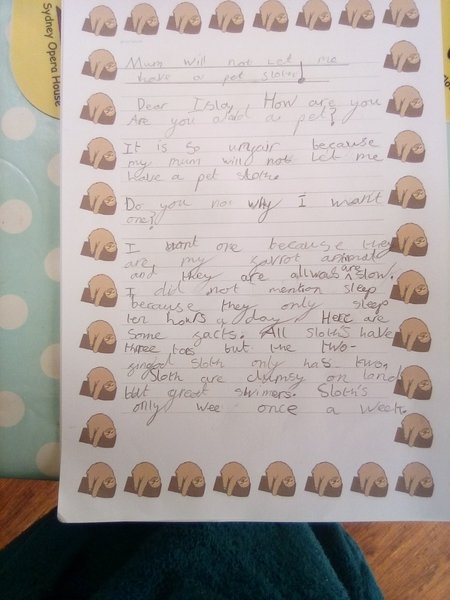 Sydney Opera House
Mum will not Let me
have a pet sloth!
Dear Islay How are you
Are you and a pet?
It is so unjair because
my mum will not Let me
have a pet sloth.
Do you not why I want
one?
I want one because they
are my
and they are allways are slow.
I did not mention sleep
because they only sleep
ten hours a day. Here are
some gacts. All sloth's have
three toes but the two-
gingod sloth only has two.
Sloth are clumsy on land
but great swimers. Sloth's
only wee once a week.